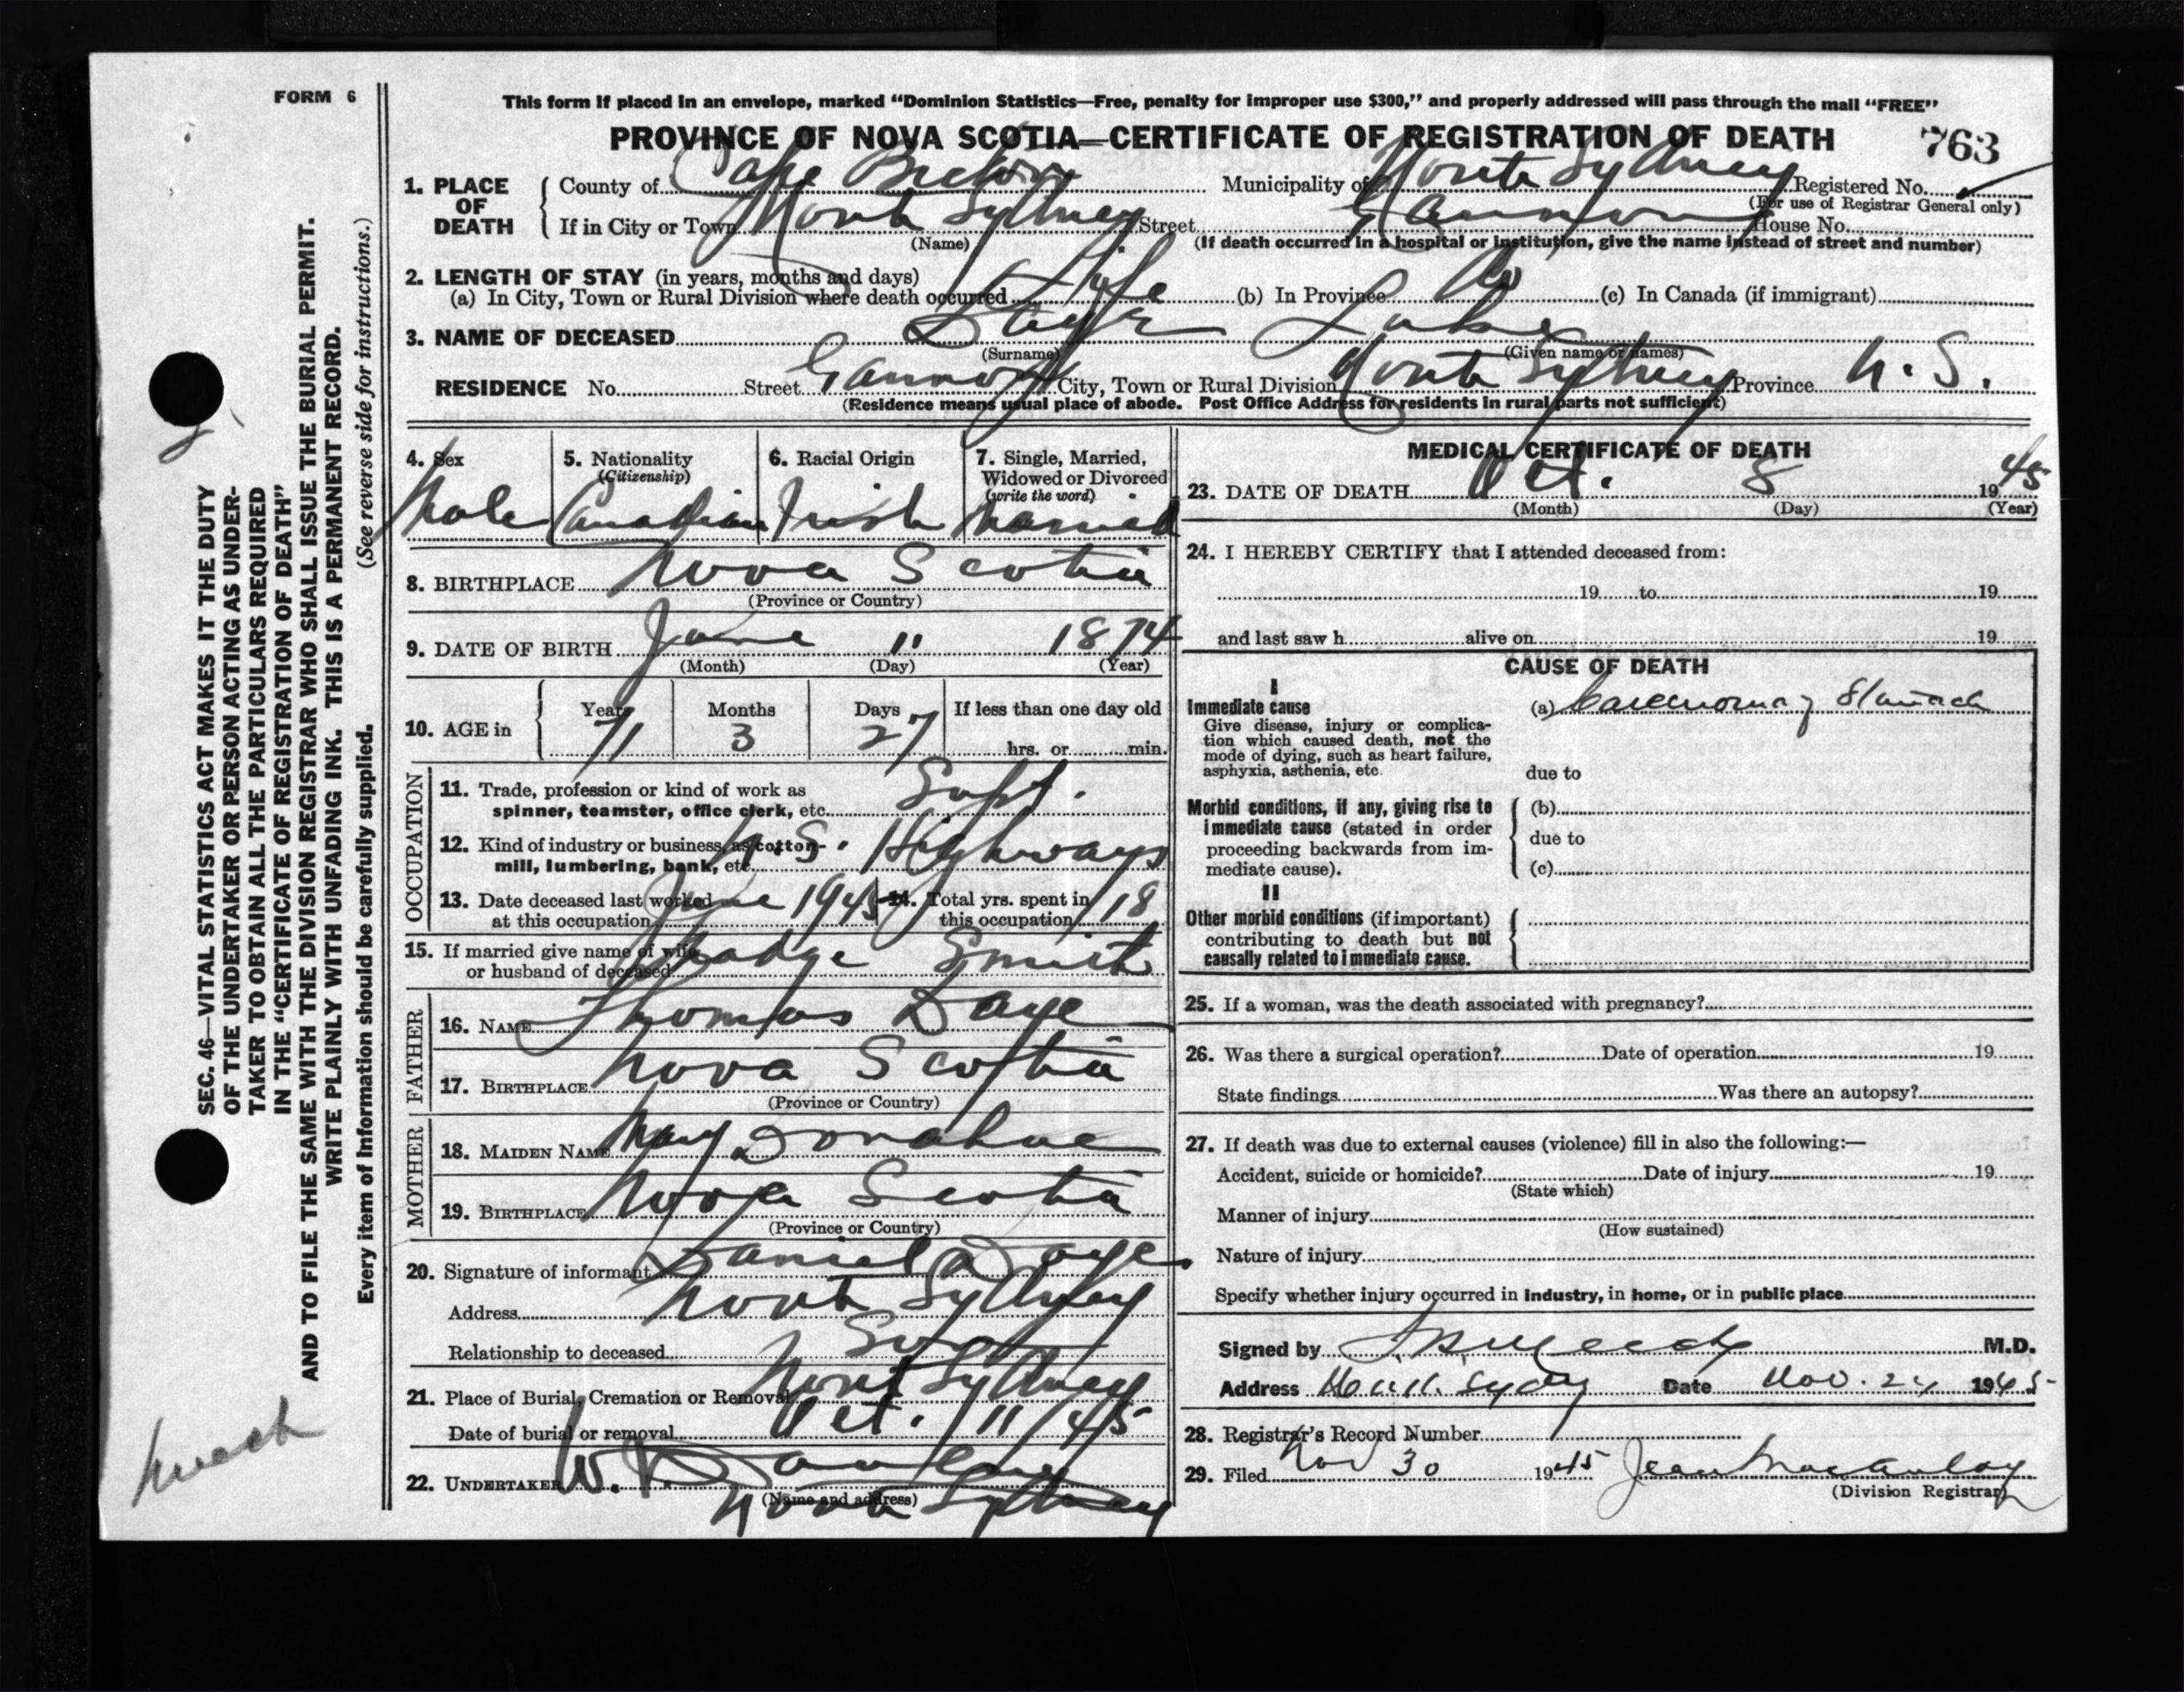 FORM 6
This form if placed in an envelope, marked “Dominion Statistics—Free, penalty for improper use $300,” and properly addressed will pass through the mail “FREE”
PROVINCE OF NOVA SCOTIA—CERTIFICATE OF REGISTRATION OF DEATH
763
1. PLACE OF DEATH
County of Cape Breton Municipality of North Sydney Registered No.
(For use of Registrar General only)
If in City or Town North Sydney Street Gannon House No.
(Name) (If death occurred in a hospital or institution, give the name instead of street and number)
2. LENGTH OF STAY (in years, months and days)
(a) In City, Town or Rural Division where death occurred Life (b) In Province Do (c) In Canada (if immigrant)
3. NAME OF DECEASED Daye Luke
(Surname) (Given name or names)
RESIDENCE No. Street Gannon City, Town or Rural Division North Sydney Province N.S.
(Residence means usual place of abode. Post Office Address for residents in rural parts not sufficient)
4. Sex
Male
5. Nationality
(Citizenship)
Canadian
6. Racial Origin
Irish
7. Single, Married,
Widowed or Divorced
(write the word)
Married
8. BIRTHPLACE Nova Scotia
(Province or Country)
9. DATE OF BIRTH June 11 1874
(Month) (Day) (Year)
10. AGE in
Years Months Days If less than one day old
71 3 27 hrs. or min.
OCCUPATION
11. Trade, profession or kind of work as
spinner, teamster, office clerk, etc. Supt.
12. Kind of industry or business, as cotton-
mill, lumbering, bank, etc. N.S. Highways
13. Date deceased last worked
at this occupation June 1945
14. Total yrs. spent in
this occupation 18
15. If married give name of wife
or husband of deceased Madge Smith
FATHER
16. NAME Thomas Daye
17. BIRTHPLACE Nova Scotia
(Province or Country)
MOTHER
18. MAIDEN NAME Mary Donahue
19. BIRTHPLACE Nova Scotia
(Province or Country)
20. Signature of informant Daniel Daye
Address North Sydney
Relationship to deceased Son
21. Place of Burial, Cremation or Removal North Sydney
Date of burial or removal Oct. 11/45
22. UNDERTAKER W.
(Name and address)
North Sydney
MEDICAL CERTIFICATE OF DEATH
23. DATE OF DEATH Oct. 8 1945
(Month) (Day) (Year)
24. I HEREBY CERTIFY that I attended deceased from:
19 to 19
and last saw h alive on 19
CAUSE OF DEATH
I
Immediate cause
Give disease, injury or complica-
tion which caused death, not the
mode of dying, such as heart failure,
asphyxia, asthenia, etc.
(a) Carcinoma of Stomach
due to
Morbid conditions, if any, giving rise to
immediate cause (stated in order
proceeding backwards from im-
mediate cause).
(b)
due to
(c)
II
Other morbid conditions (if important)
contributing to death but not
causally related to immediate cause.
25. If a woman, was the death associated with pregnancy?
26. Was there a surgical operation? Date of operation 19
State findings Was there an autopsy?
27. If death was due to external causes (violence) fill in also the following:—
Accident, suicide or homicide? Date of injury 19
(State which)
Manner of injury
(How sustained)
Nature of injury
Specify whether injury occurred in industry, in home, or in public place
Signed by M.D.
Address North Sydney Date Nov. 24 1945
28. Registrar's Record Number
29. Filed Nov 30 1945 Jean MacAulay
(Division Registrar)
SEC. 46—VITAL STATISTICS ACT MAKES IT THE DUTY
OF THE UNDERTAKER OR PERSON ACTING AS UNDER-
TAKER TO OBTAIN ALL THE PARTICULARS REQUIRED
IN THE “CERTIFICATE OF REGISTRATION OF DEATH”
AND TO FILE THE SAME WITH THE DIVISION REGISTRAR WHO SHALL ISSUE THE BURIAL PERMIT.
WRITE PLAINLY WITH UNFADING INK. THIS IS A PERMANENT RECORD.
Every item of information should be carefully supplied. (See reverse side for instructions.)